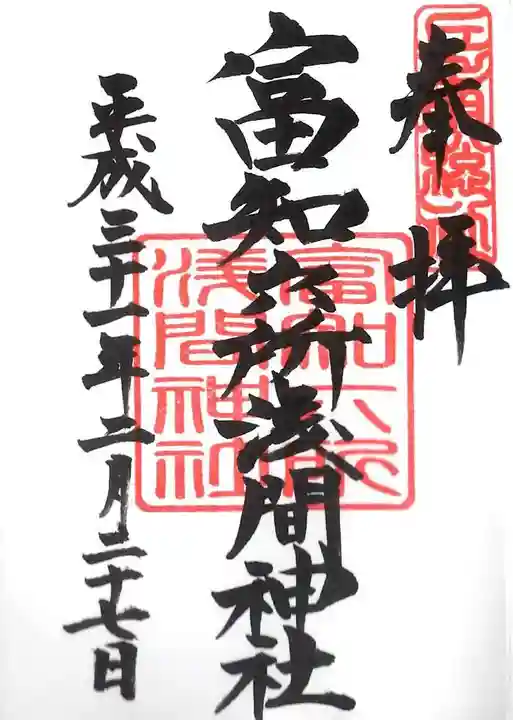 奉拝
富知六所浅間神社
富知六所
浅間神社
平成三十一年二月二十七日